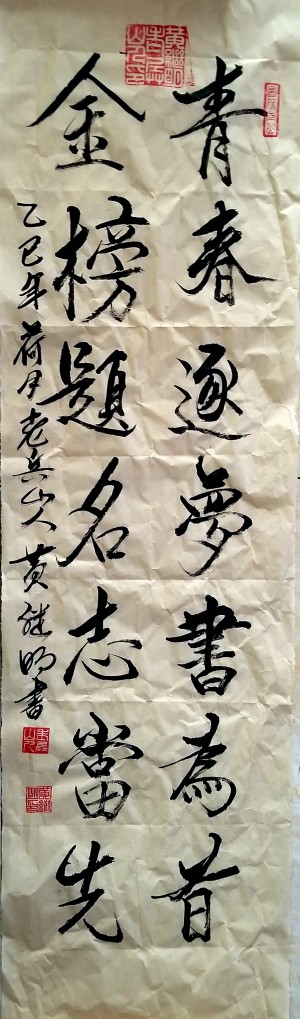 青春逐夢書為首
金榜題名志當先
乙巳年荷月老兵山人黄继明書